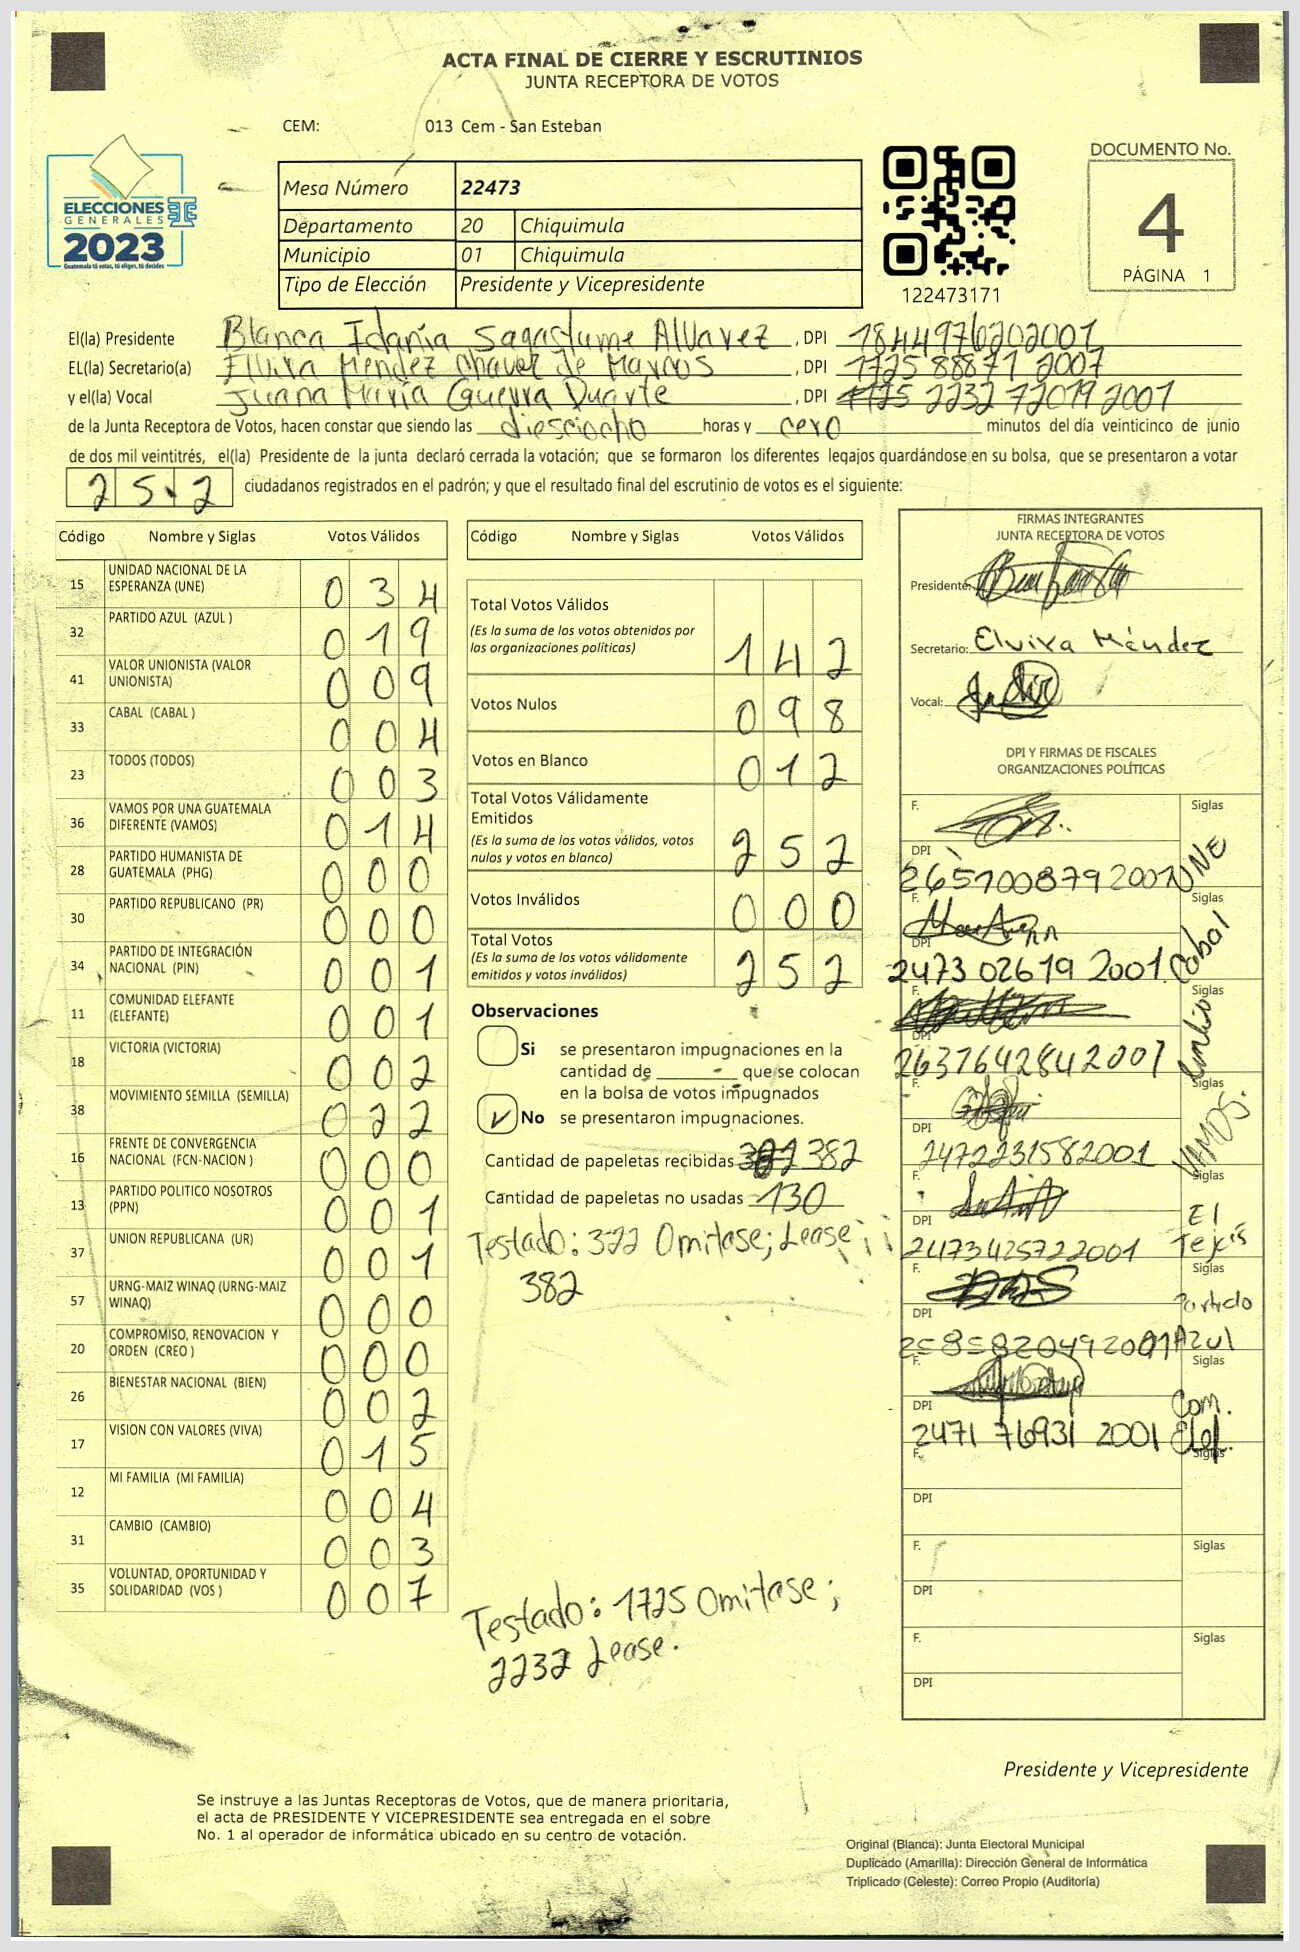 ACTA FINAL DE CIERRE Y ESCRUTINIOS
JUNTA RECEPTORA DE VOTOS
CEM: 013 Cem - San Esteban
ELECCIONES
GENERALES
2023
Guatemala tú votas, tú eliges, tú decides
Mesa Número 22473
Departamento 20 Chiquimula
Municipio 01 Chiquimula
Tipo de Elección Presidente y Vicepresidente
122473171
DOCUMENTO No.
4
PÁGINA 1
El(la) Presidente Blanca Idania Sagastume Alvarez , DPI 1844976202001
EL(la) Secretario(a) Elvira Méndez Chavez de Marcos , DPI 1725 88871 2007
y el(la) Vocal Juana María Guerra Duarte , DPI 1725 2232 72019 2001
de la Junta Receptora de Votos, hacen constar que siendo las diesciocho horas y cero minutos del día veinticinco de junio
de dos mil veintitrés, el(la) Presidente de la junta declaró cerrada la votación; que se formaron los diferentes legajos quardándose en su bolsa, que se presentaron a votar
252 ciudadanos registrados en el padrón; y que el resultado final del escrutinio de votos es el siguiente:
Código Nombre y Siglas Votos Válidos
15 UNIDAD NACIONAL DE LA ESPERANZA (UNE) 034
32 PARTIDO AZUL (AZUL ) 019
41 VALOR UNIONISTA (VALOR UNIONISTA) 009
33 CABAL (CABAL ) 004
23 TODOS (TODOS) 003
36 VAMOS POR UNA GUATEMALA DIFERENTE (VAMOS) 014
28 PARTIDO HUMANISTA DE GUATEMALA (PHG) 000
30 PARTIDO REPUBLICANO (PR) 000
34 PARTIDO DE INTEGRACIÓN NACIONAL (PIN) 001
11 COMUNIDAD ELEFANTE (ELEFANTE) 001
18 VICTORIA (VICTORIA) 002
38 MOVIMIENTO SEMILLA (SEMILLA) 022
16 FRENTE DE CONVERGENCIA NACIONAL (FCN-NACION ) 000
13 PARTIDO POLITICO NOSOTROS (PPN) 001
37 UNION REPUBLICANA (UR) 001
57 URNG-MAIZ WINAQ (URNG-MAIZ WINAQ) 000
20 COMPROMISO, RENOVACION Y ORDEN (CREO ) 000
26 BIENESTAR NACIONAL (BIEN) 002
17 VISION CON VALORES (VIVA) 015
12 MI FAMILIA (MI FAMILIA) 004
31 CAMBIO (CAMBIO) 003
35 VOLUNTAD, OPORTUNIDAD Y SOLIDARIDAD (VOS ) 007
Código Nombre y Siglas Votos Válidos
Total Votos Válidos
(Es la suma de los votos obtenidos por las organizaciones políticas) 142
Votos Nulos 098
Votos en Blanco 012
Total Votos Válidamente Emitidos
(Es la suma de los votos válidos, votos nulos y votos en blanco) 252
Votos Inválidos 000
Total Votos
(Es la suma de los votos válidamente emitidos y votos inválidos) 252
Observaciones
Si se presentaron impugnaciones en la
cantidad de - que se colocan
en la bolsa de votos impugnados
No se presentaron impugnaciones.
Cantidad de papeletas recibidas 382
Cantidad de papeletas no usadas 130
Testado: 322 Omitase; Lease
382
Testado: 1725 Omitase;
2232 Lease.
FIRMAS INTEGRANTES
JUNTA RECEPTORA DE VOTOS
Presidente:
Secretario: Elvira Méndez
Vocal:
DPI Y FIRMAS DE FISCALES
ORGANIZACIONES POLÍTICAS
F. Siglas
DPI 2657008792001 UNE
F. Siglas
DPI 2473 02619 2001 Cabal
F. Siglas
DPI 2637642842001
F. Siglas
DPI 2472231582001 VAMOS.
F. Siglas
DPI 2473425722001 El
F. Siglas
DPI 2585820492001 Partido Azul
F. Siglas
DPI 2471 76931 2001 Com. Elef.
F. Siglas
DPI
F. Siglas
DPI
F. Siglas
DPI
Presidente y Vicepresidente
Se instruye a las Juntas Receptoras de Votos, que de manera prioritaria,
el acta de PRESIDENTE Y VICEPRESIDENTE sea entregada en el sobre
No. 1 al operador de informática ubicado en su centro de votación.
Original (Blanca): Junta Electoral Municipal
Duplicado (Amarilla): Dirección General de Informática
Triplicado (Celeste): Correo Propio (Auditoría)